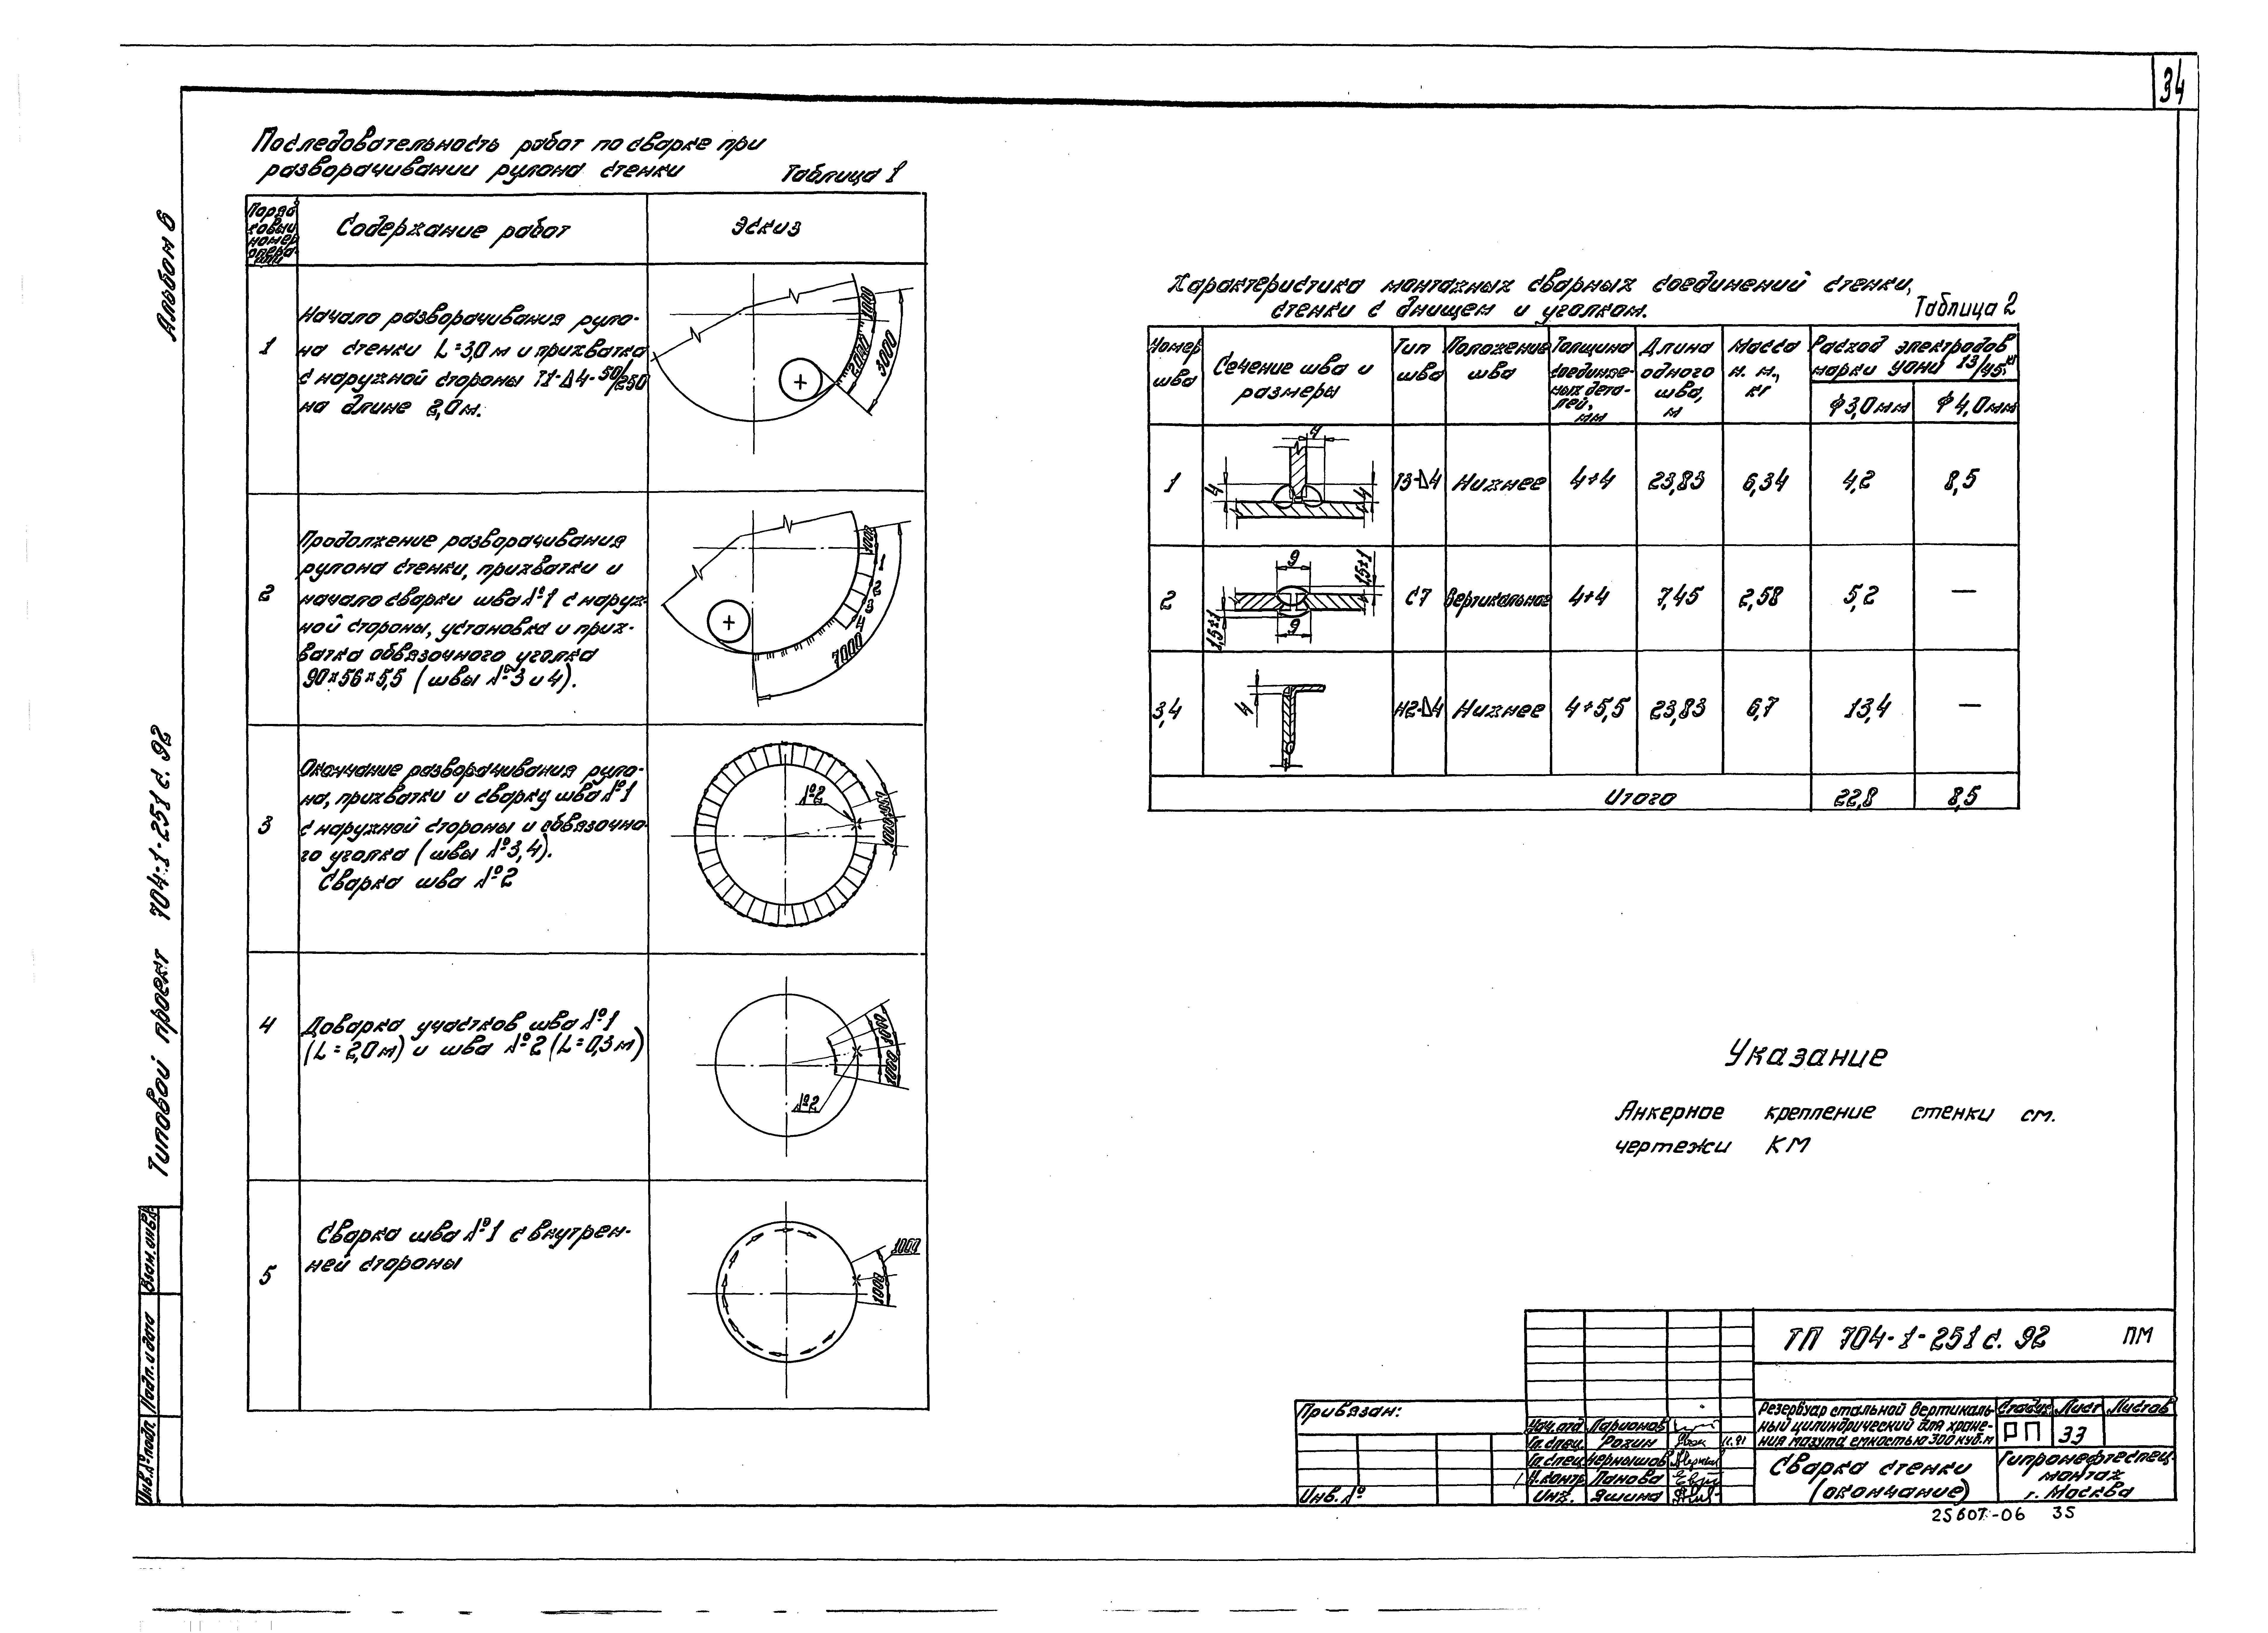 34
Альбом 6
Типовой проект 704-1-251 с. 92
Последовательность работ по сварке при
разворачивании рулона стенки
Таблица 1
Поряд
ковый
номер
опера-
ции
Содержание работ
Эскиз
1
Начало разворачивания руло-
на стенки L=3,0 м и прихватка
с наружной стороны Т1-Δ4-50/250
на длине 2,0 м.
1000
2000
3000
2
Продолжение разворачивания
рулона стенки, прихватки и
начало сварки шва №1 с наруж-
ной стороны, установка и прих-
ватка обвязочного уголка
90×56×5,5 (швы №3 и 4).
1000
1
2
3
4
7000
3
Окончание разворачивания руло-
на, прихватки и сварку шва №1
с наружной стороны и обвязочно-
го уголка (швы №3,4).
Сварка шва №2
№2
1000
1000
4
Доварка участков шва №1
(L=2,0 м) и шва №2 (L=0,3 м)
1000
1000
№2
5
Сварка шва №1 с внутрен-
ней стороны
1000
1000
Характеристика монтажных сварных соединений стенки,
стенки с днищем и уголком.
Таблица 2
Номер
шва
Сечение шва и
размеры
Тип
шва
Положение
шва
Толщина
соединяе-
мых дета-
лей,
мм
Длина
одного
шва,
м
Масса
н. м.,
кг
Расход электродов
марки УОНИ 13/45, кг
ϕ3,0 мм
ϕ4,0 мм
1
4
4
4
Т3-Δ4
Нижнее
4+4
23,83
6,34
4,2
8,5
2
9
1,5±1
1,5±1
9
С7
Вертикальное
4+4
7,45
2,58
5,2
—
3,4
4
Н2-Δ4
Нижнее
4+5,5
23,83
6,7
13,4
—
Итого
22,8
8,5
Указание
Анкерное крепление стенки см.
чертежи КМ
Взам. инв.№
Подп. и дата
Инв.№ подл.
Привязан:
Инв. №
Нач.отд Ларионов
Гл.спец. Розин 12.91
Гл.спец Чернышов
Н.контр Панова
Инж. Яшина
ТП 704-1-251 с. 92 ПМ
Резервуар стальной вертикаль-
ный цилиндрический для хране-
ния мазута емкостью 300 куб.м
Стадия Лист Листов
РП 33
Сварка стенки
(окончание)
Гипронефтеспец-
монтаж
г. Москва
25607-06 35